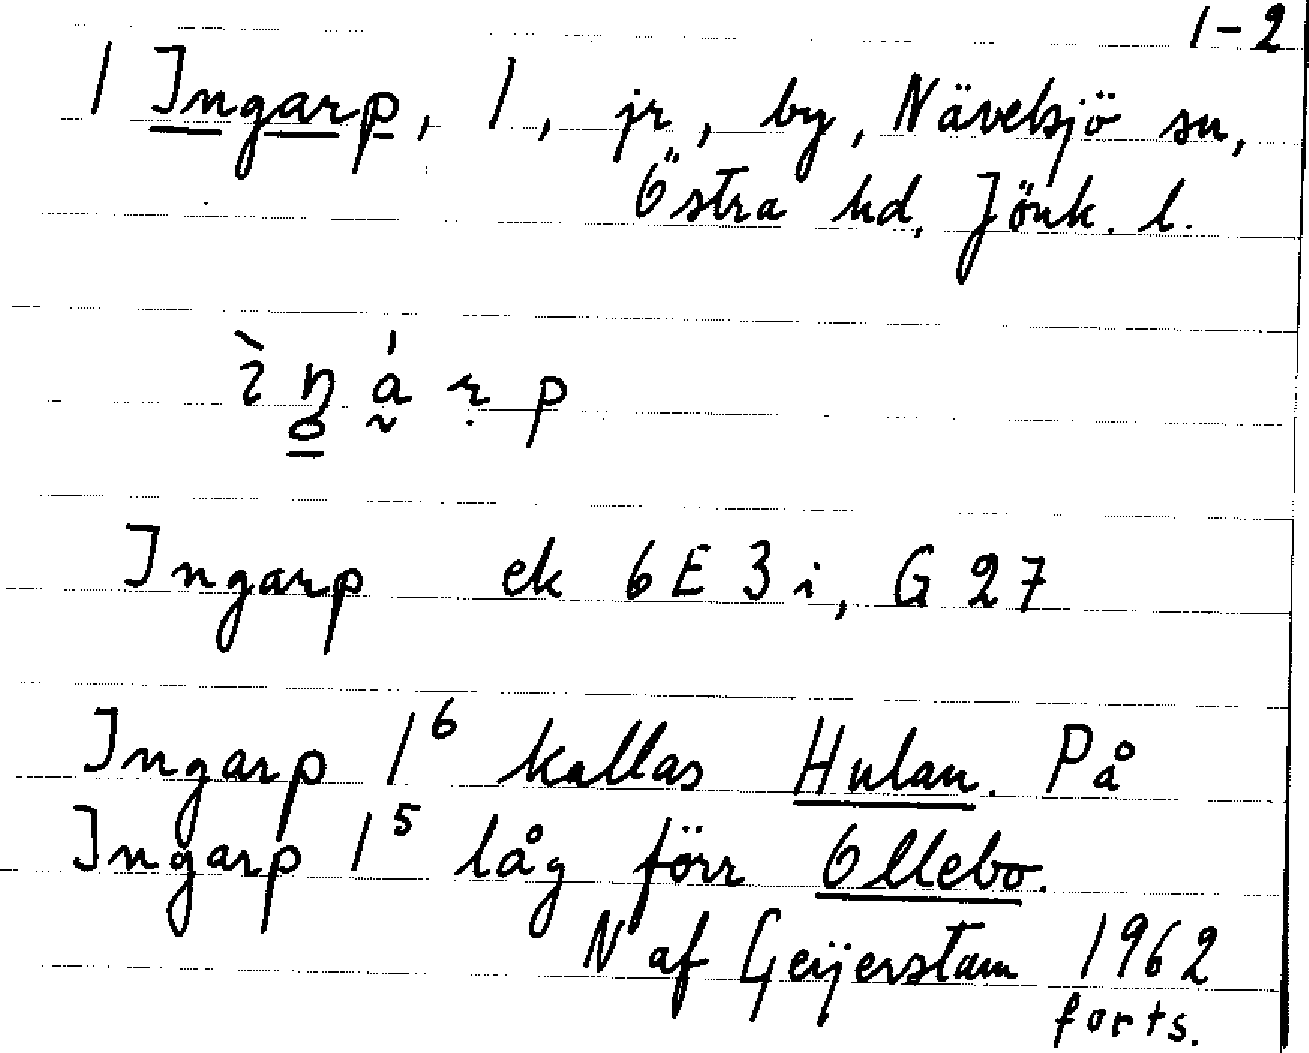 1-2
1 Ingarp, 1, jr, by, Nävelsjö sn,
Östra hd, Jönk. l.
Ingarp ek 6E 3i, G 27
Ingarp 1⁶ kallas Hulan. På
Ingarp 1⁵ låg förr Ollebo.
N af Geijerstam 1962
forts.